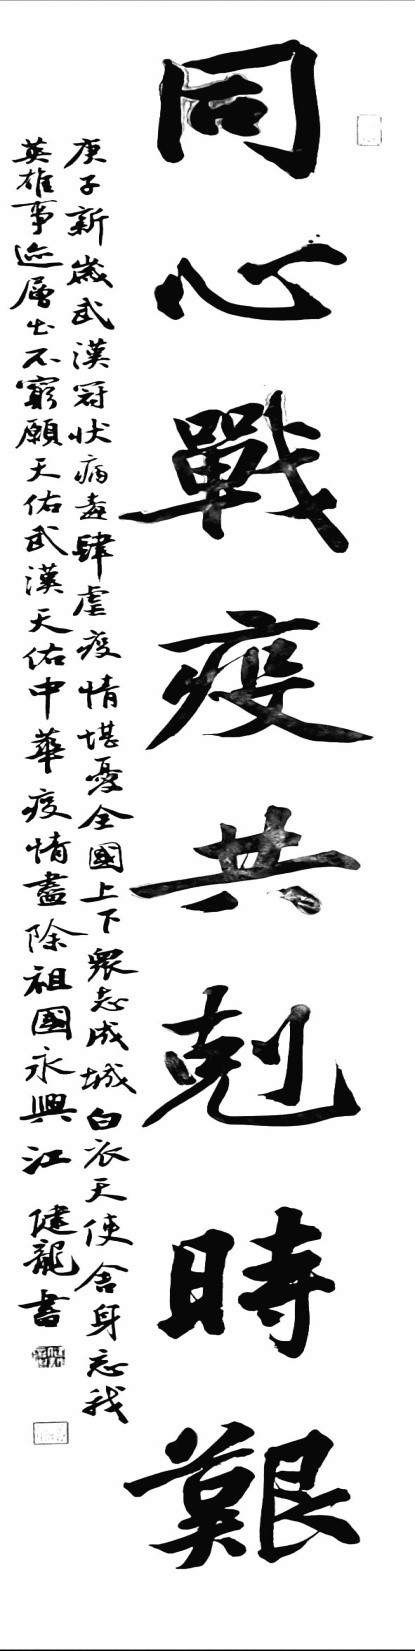 同心戰疫共剋時艱
庚子新歲武漢冠狀病毒肆虐疫情堪憂全國上下眾志成城白衣天使舍身忘我
英雄事迹層出不窮願天佑武漢天佑中華疫情盡除祖國永興江健龍書